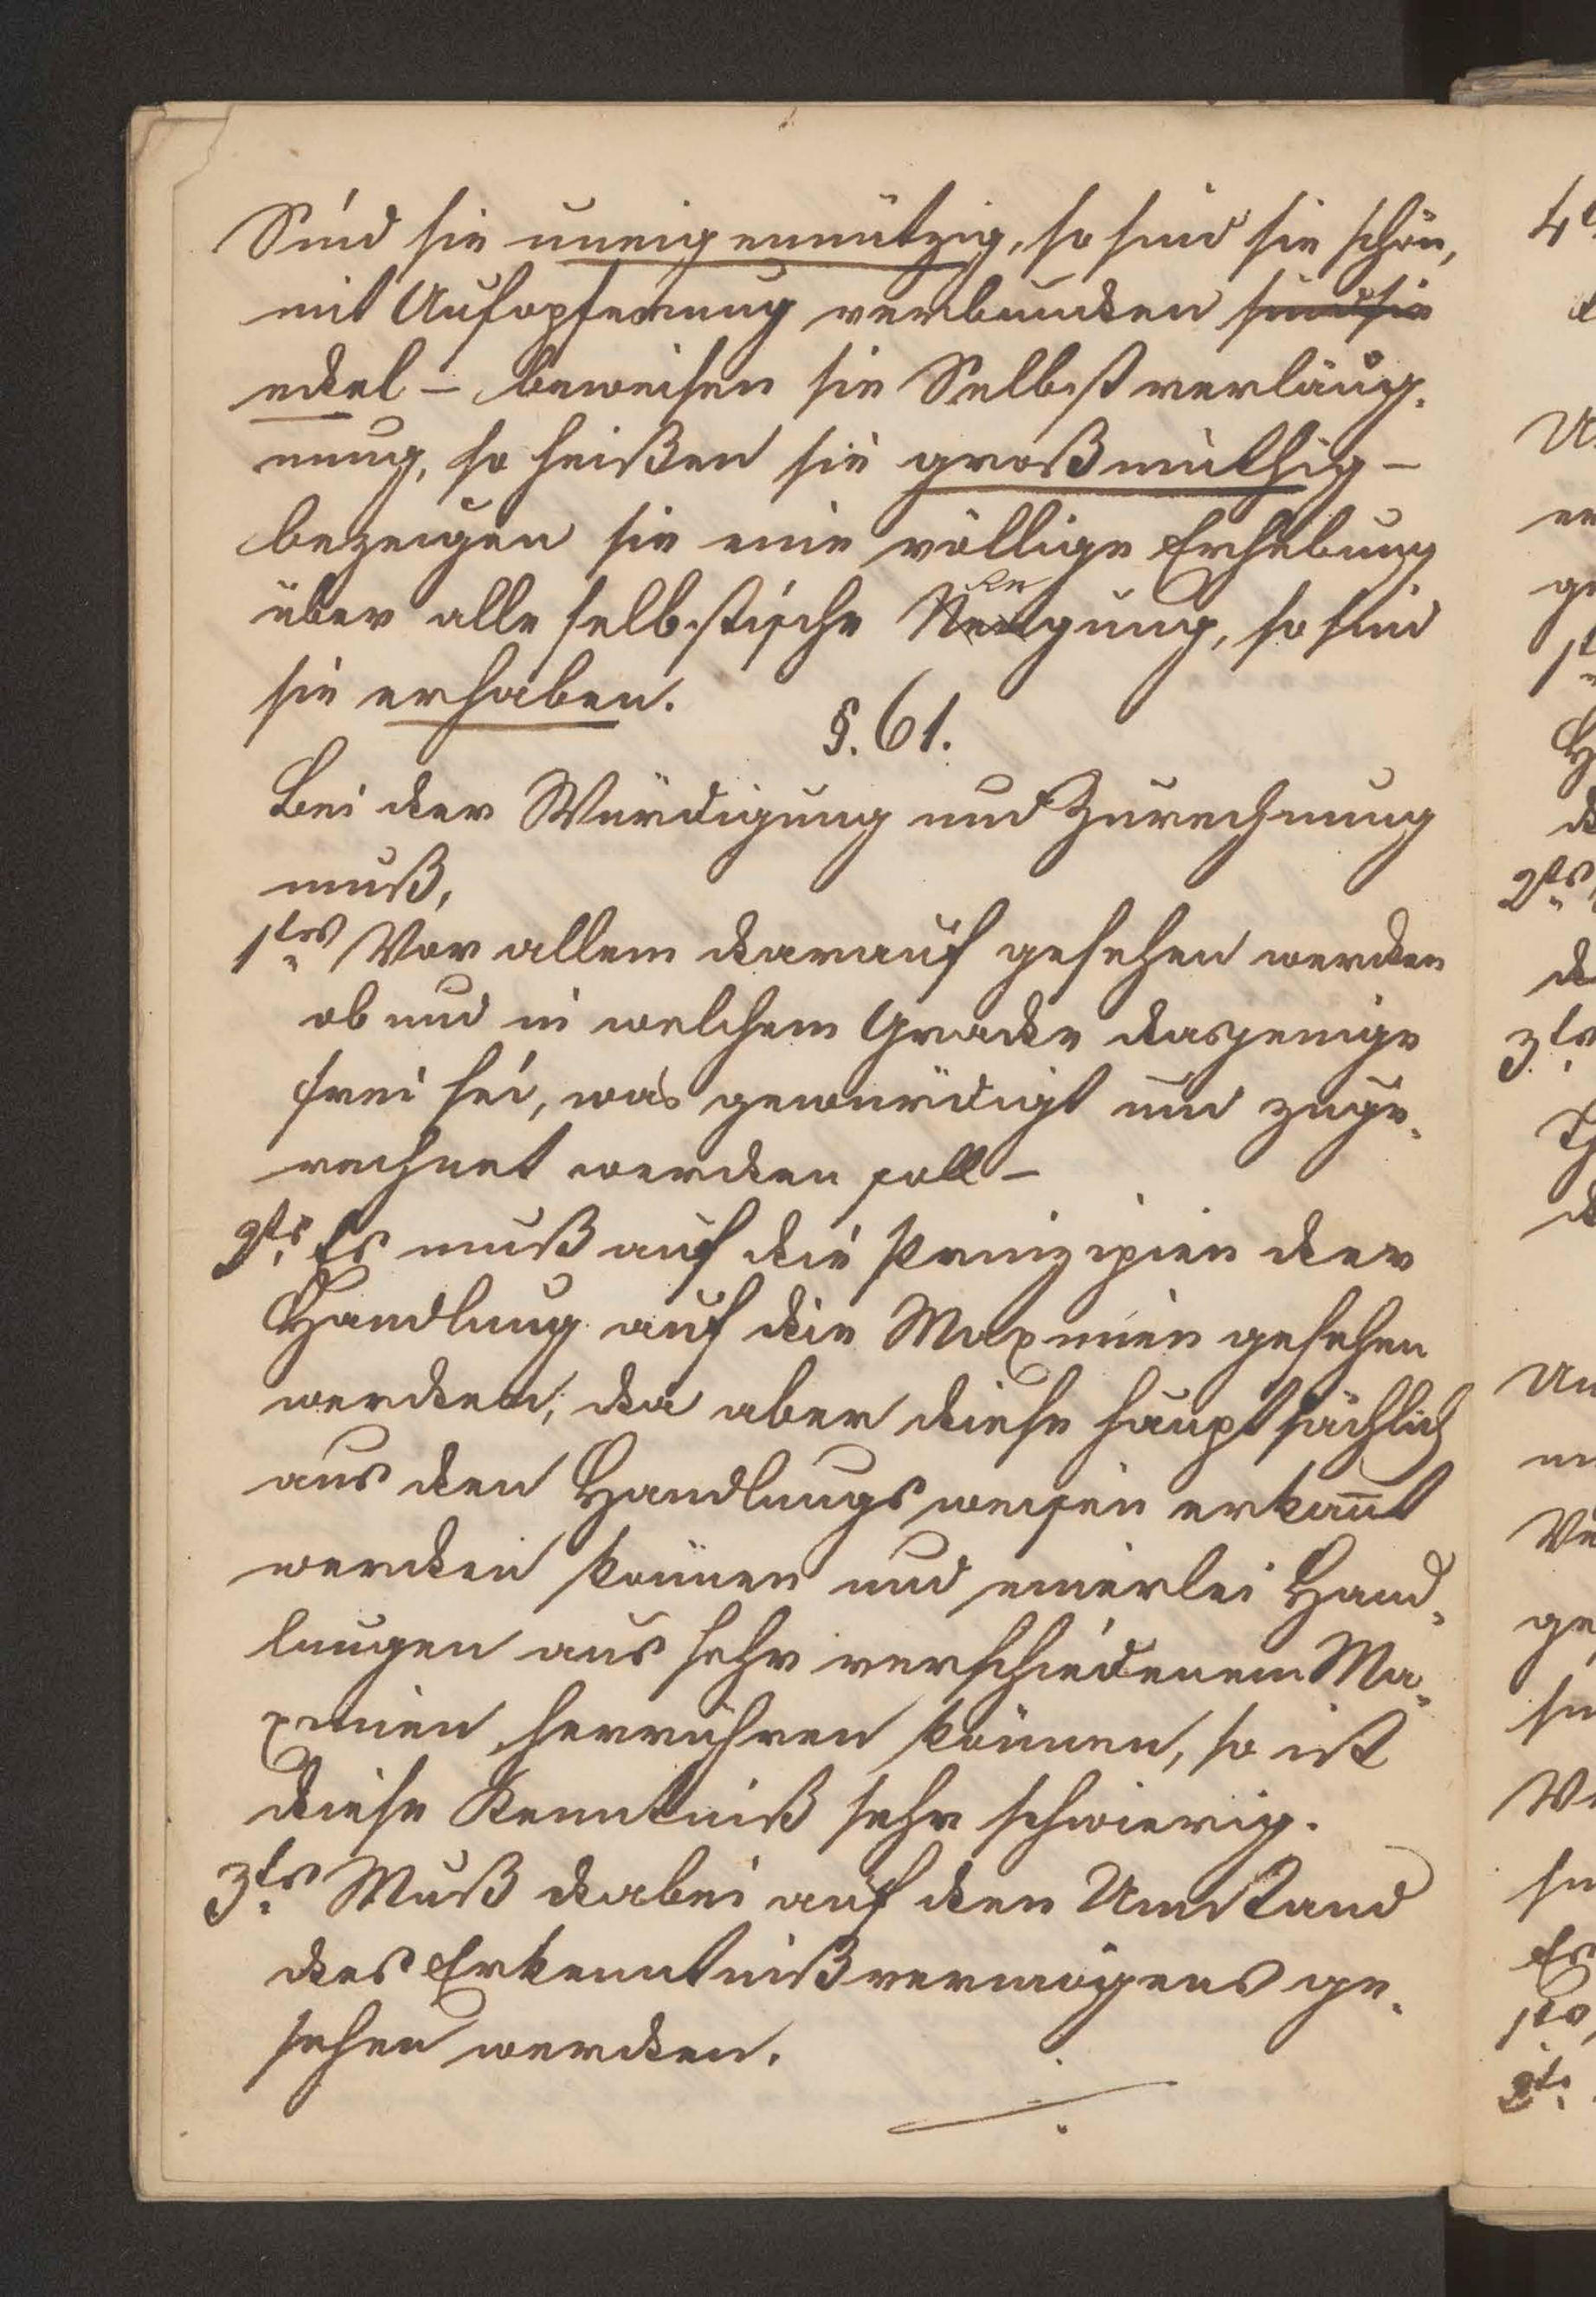 Sind sie uneigennützig, so sind sie schön,
mit Aufopferung verbunden sind sie
edel – beweisen sie Selbstverläug-
nung, so heißen sie großmüthig –
bezeugen sie eine völlige Erhebung
über alle selbstische Neigung, so sind
sie erhaben.
§. 61.
Bei der Würdigung und Zurechnung
muß,
1tens Vor allem darauf gesehen werden
ob und in welchem Grade dasjenige
frei sei, was gewürdigt und zuge-
rechnet werden soll –
2ts Es muß auf die Prinzipien der
Handlung auf die Maximen gesehen
werden; da aber diese hauptsächlich
aus den Handlungsweisen erkannt
werden können und einerlei Hand-
lungen aus sehr verschiedenem Ma-
ximen herrühren können, so ist
diese Kenntniß sehr schwierig.
3ts Muß dabei auf den Umstand
des Erkenntnißvermögens ge-
sehen werden.